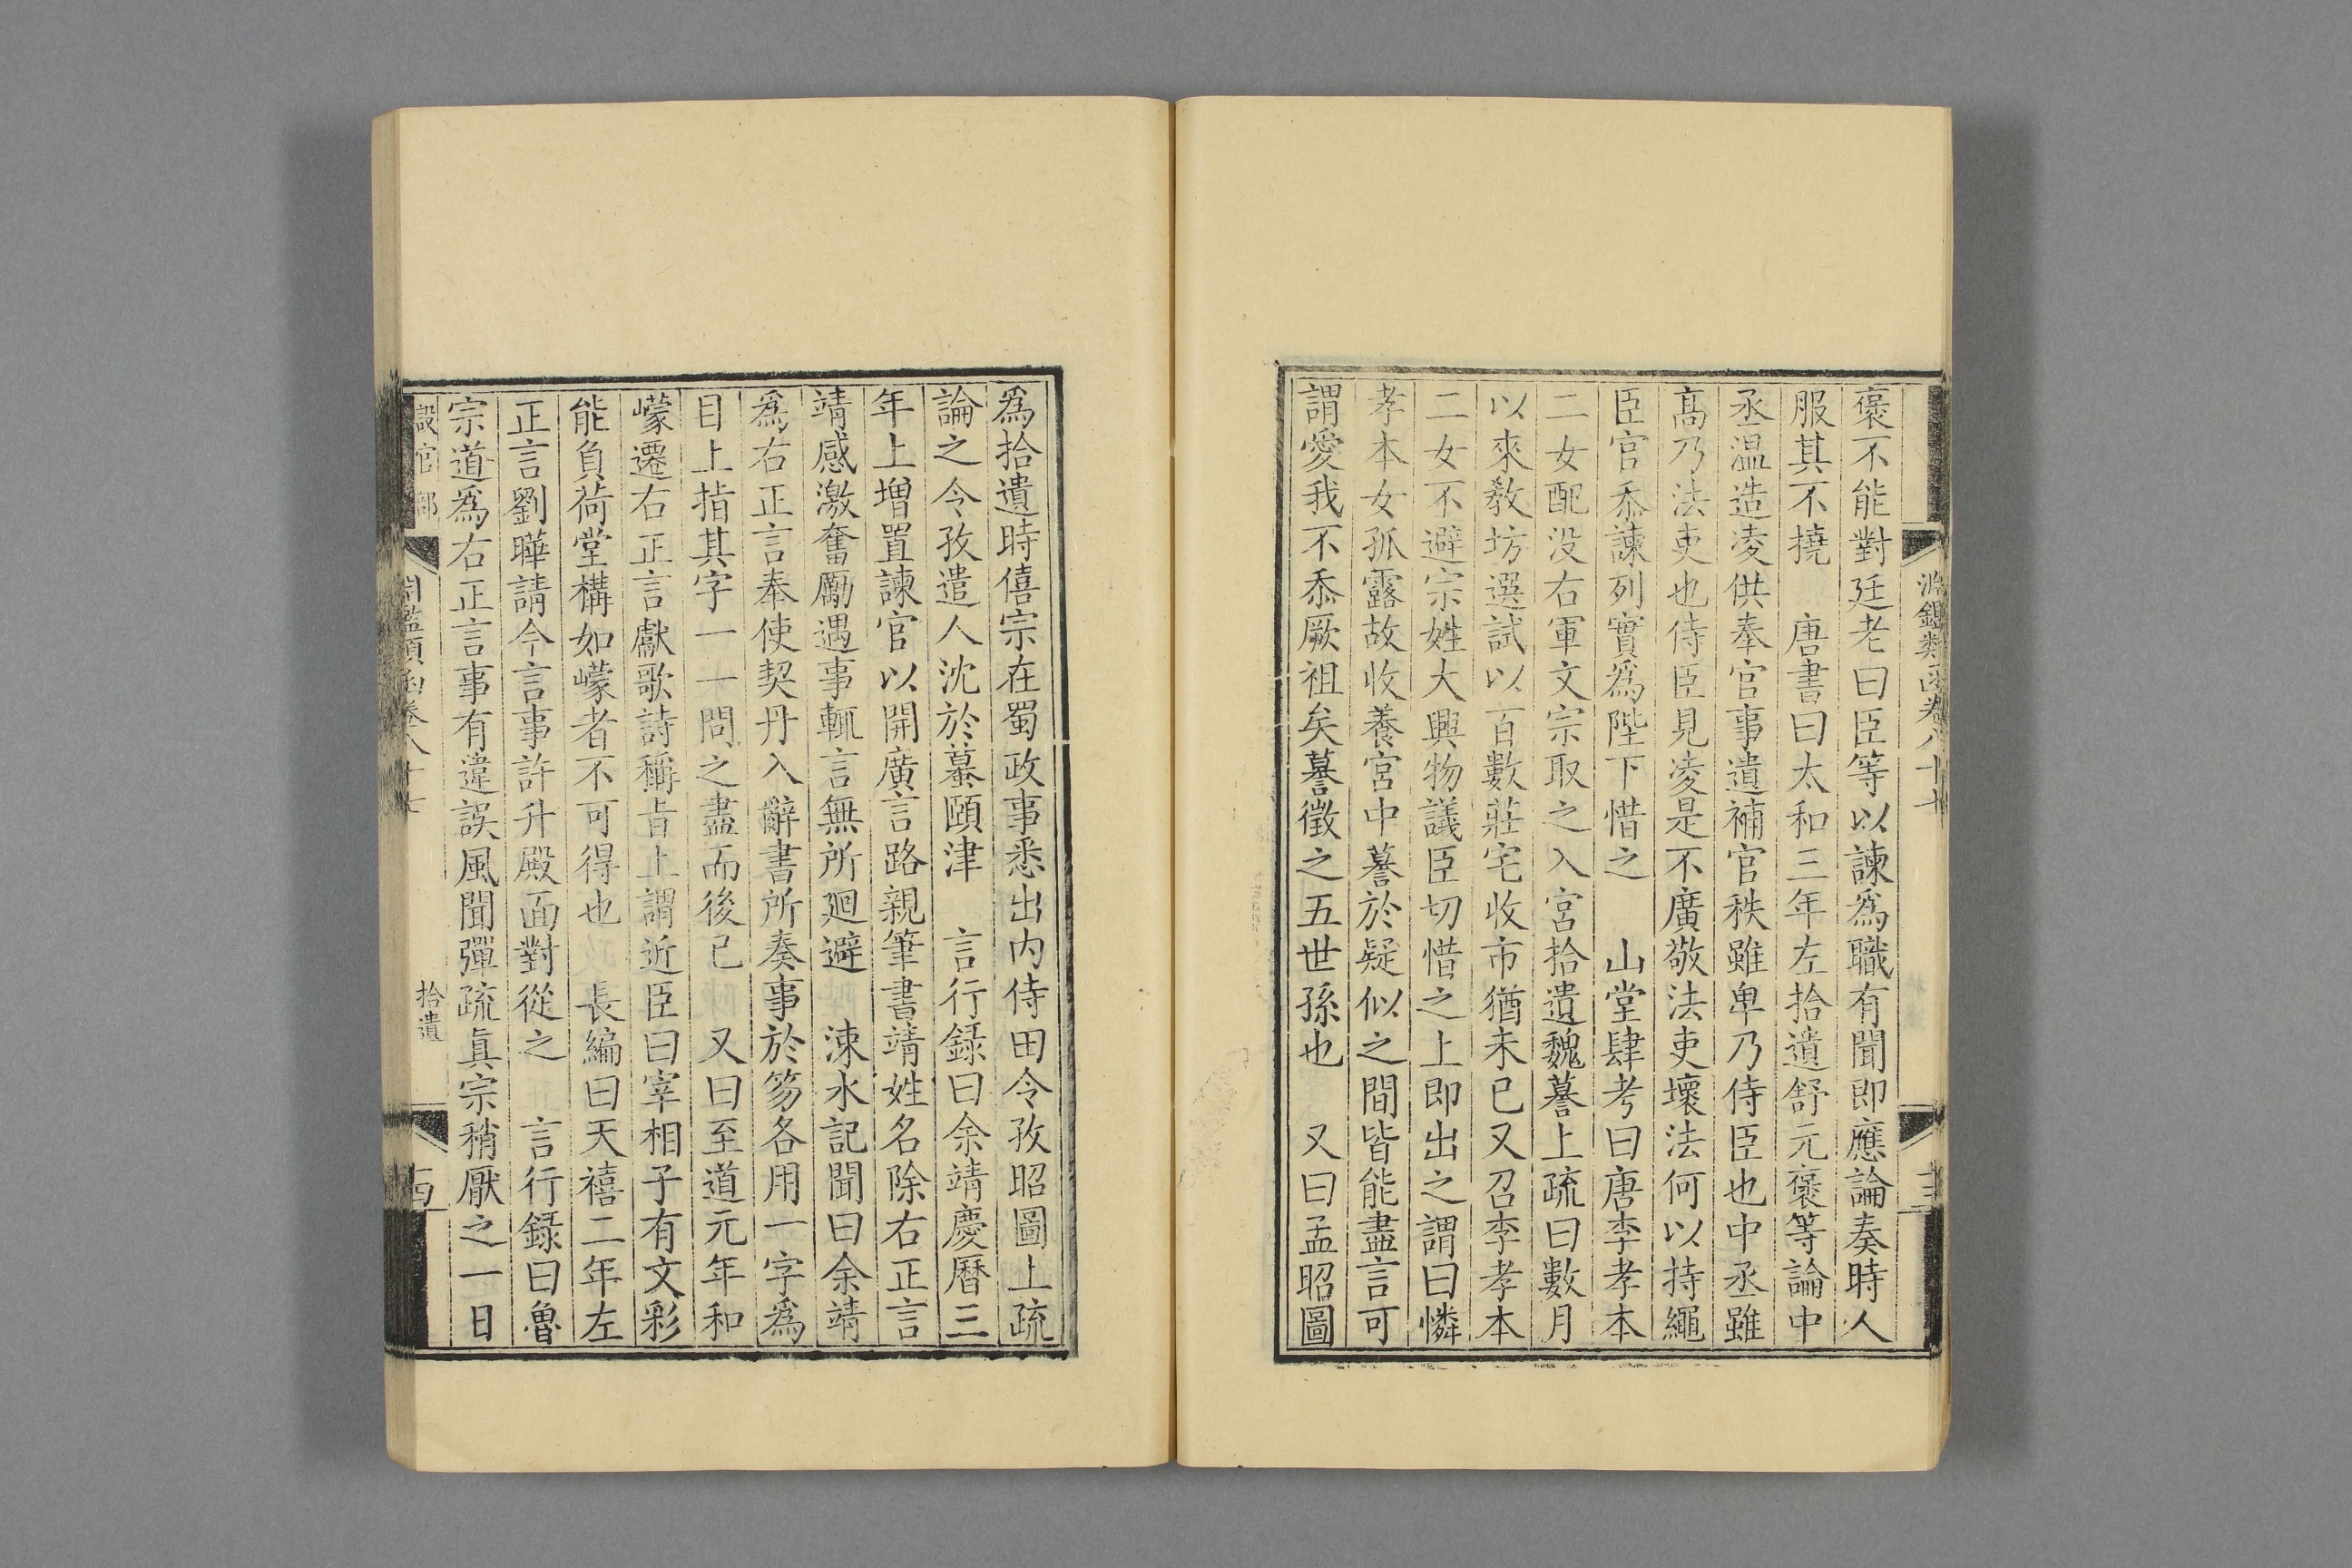 淵鑑類函卷八十七
十三
褒不能對廷老曰臣等以諫爲職有聞即應論奏時人
服其不撓　唐書曰太和三年左拾遺舒元褒等論中
丞温造凌供奉官事遺補官秩雖卑乃侍臣也中丞雖
髙乃法吏也侍臣見凌是不廣敬法吏壞法何以持繩
臣官忝諫列實爲陛下惜之　山堂肆考曰唐李孝本
二女配没右軍文宗取之入宮拾遺魏謩上疏曰數月
以來敎坊選試以百數莊宅收市猶未已又召李孝本
二女不避宗姓大興物議臣切惜之上即出之謂曰憐
孝本女孤露故收養宮中謩於疑似之間皆能盡言可
謂愛我不忝厥祖矣謩徵之五世孫也　又曰孟昭圖
爲拾遺時僖宗在蜀政事悉出内侍田令孜昭圖上疏
論之令孜遣人沈於蟇頤津　言行録曰余靖慶曆三
年上增置諫官以開廣言路親筆書靖姓名除右正言
靖感激奮勵遇事輒言無所廻避　涑水記聞曰余靖
爲右正言奉使契丹入辭書所奏事於笏各用一字爲
目上指其字一一問之盡而後已　又曰至道元年和
㠓遷右正言獻歌詩稱旨上謂近臣曰宰相子有文彩
能負荷堂構如㠓者不可得也　長編曰天禧二年左
正言劉曄請今言事許升殿面對從之　言行録曰魯
宗道爲右正言事有違誤風聞彈疏眞宗稍厭之一日
設官部
淵鑑類函卷八十七
拾遺
十四